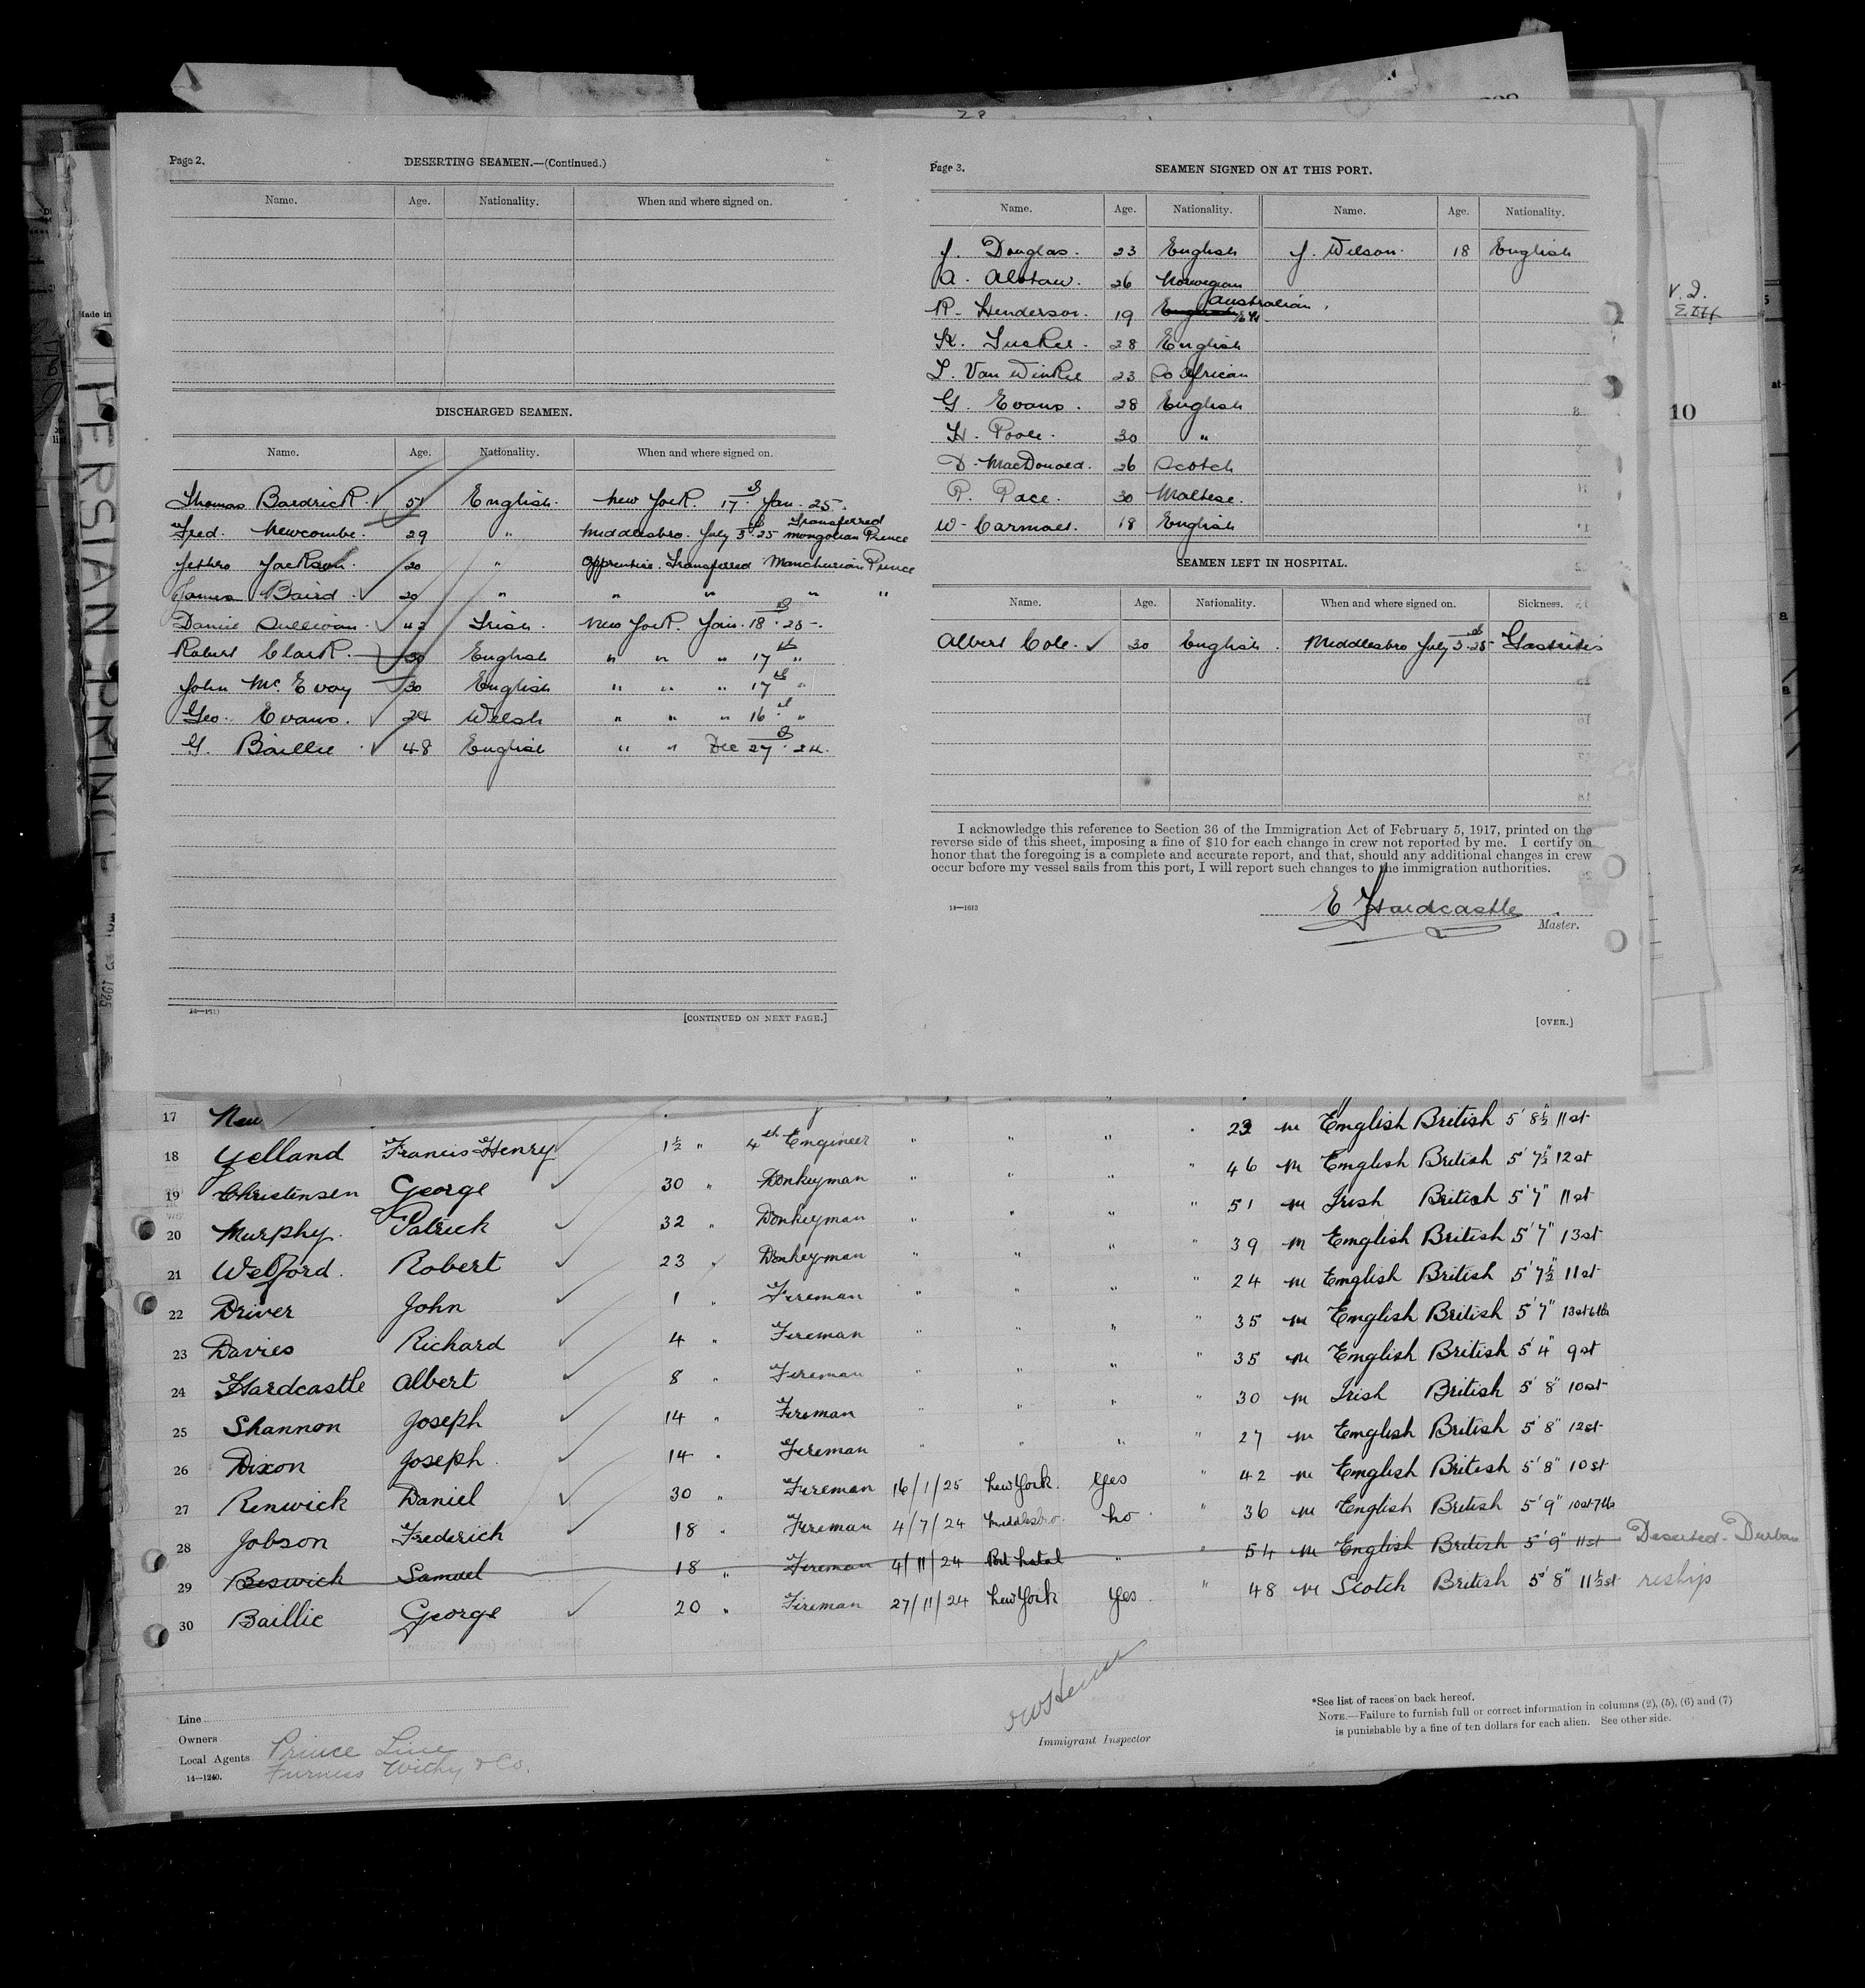 Page 2.
DESERTING SEAMEN.—(Continued.)
Name. Age. Nationality. When and where signed on.
DISCHARGED SEAMEN.
Name. Age. Nationality. When and where signed on.
Thomas Bardrick 51 English New York. 17th Jan. 25.
Fred. Newcombe. 29 " Middlesbro. July 3rd 25 Transferred Mongolian Prince
Jethro Jackson. 20 " Apprentice. Transferred Manchurian Prince
James Baird. 20 " " " " "
Daniel Sullivan. 42 Irish. New York. Jan. 18th 25.
Robert Clark. 30 English " " " 17th "
John Mc. Evoy 30 English " " " 17th "
Geo. Evans. 24 Welsh " " " 16th "
G. Baillie 48 English " " Dec 27th 24.
14—1613
[CONTINUED ON NEXT PAGE.]
Page 3.
SEAMEN SIGNED ON AT THIS PORT.
Name. Age. Nationality. Name. Age. Nationality.
J. Douglas. 23 English J. Wilson. 18 English
A. 26 Norwegian
R. Henderson. 19 English Australian
H. Tucker. 28 English
L. Van Winkle 23 So African
G. Evans. 28 English
H. Poole. 30 "
D. MacDonald. 26 Scotch
P. Pace. 30 Maltese.
W. 18 English
SEAMEN LEFT IN HOSPITAL.
Name. Age. Nationality. When and where signed on. Sickness.
Albert Cole. 30 English. Middlesbro July 3rd 25 Gastritis
I acknowledge this reference to Section 36 of the Immigration Act of February 5, 1917, printed on the
reverse side of this sheet, imposing a fine of $10 for each change in crew not reported by me. I certify on
honor that the foregoing is a complete and accurate report, and that, should any additional changes in crew
occur before my vessel sails from this port, I will report such changes to the immigration authorities.
14—1613
E Hardcastle
Master.
[OVER.]
10
PERSIAN PRINCE
1925
Made in
17 23 m English British 5' 8½" 11st
18 Yelland Francis Henry 1½ " 4th Engineer " " " " 46 m English British 5' 7½" 12st
19 Christensen George 30 " Donkeyman " " " " 51 m Irish British 5' 7" 11st
20 Murphy. Patrick 32 " Donkeyman " " " " 39 m English British 5' 7" 13st
21 Welford. Robert 23 " Donkeyman " " " " 24 m English British 5' 7½" 11st
22 Driver John 1 " Fireman " " " " 35 m English British 5' 7" 13st6lbs
23 Davies Richard 4 " Fireman " " " " 35 m English British 5' 4" 9st
24 Hardcastle Albert 8 " Fireman " " " " 30 m Irish British 5' 8" 10st
25 Shannon Joseph 14 " Fireman " " " " 27 m English British 5' 8" 12st
26 Dixon Joseph. 14 " Fireman " " " " 42 m English British 5' 8" 10st
27 Renwick Daniel 30 " Fireman 16/1/25 New York. Yes " 36 m English British 5' 9" 10st7lbs
28 Jobson Frederich 18 " Fireman 4/7/24 Middlesbro. No " 54 m English British 5' 9" 11st Deserted-Durban
29 Beswick Samuel 18 " Fireman 4/11/24 Port Natal " " 48 m Scotch British 5' 8" 11½st reship
30 Baillie George 20 " Fireman 27/11/24 New York Yes.
Line
Owners
Local Agents Prince Line
Furness Withy & Co.
14—1240.
Immigrant Inspector
*See list of races on back hereof.
NOTE.—Failure to furnish full or correct information in columns (2), (5), (6) and (7)
is punishable by a fine of ten dollars for each alien. See other side.